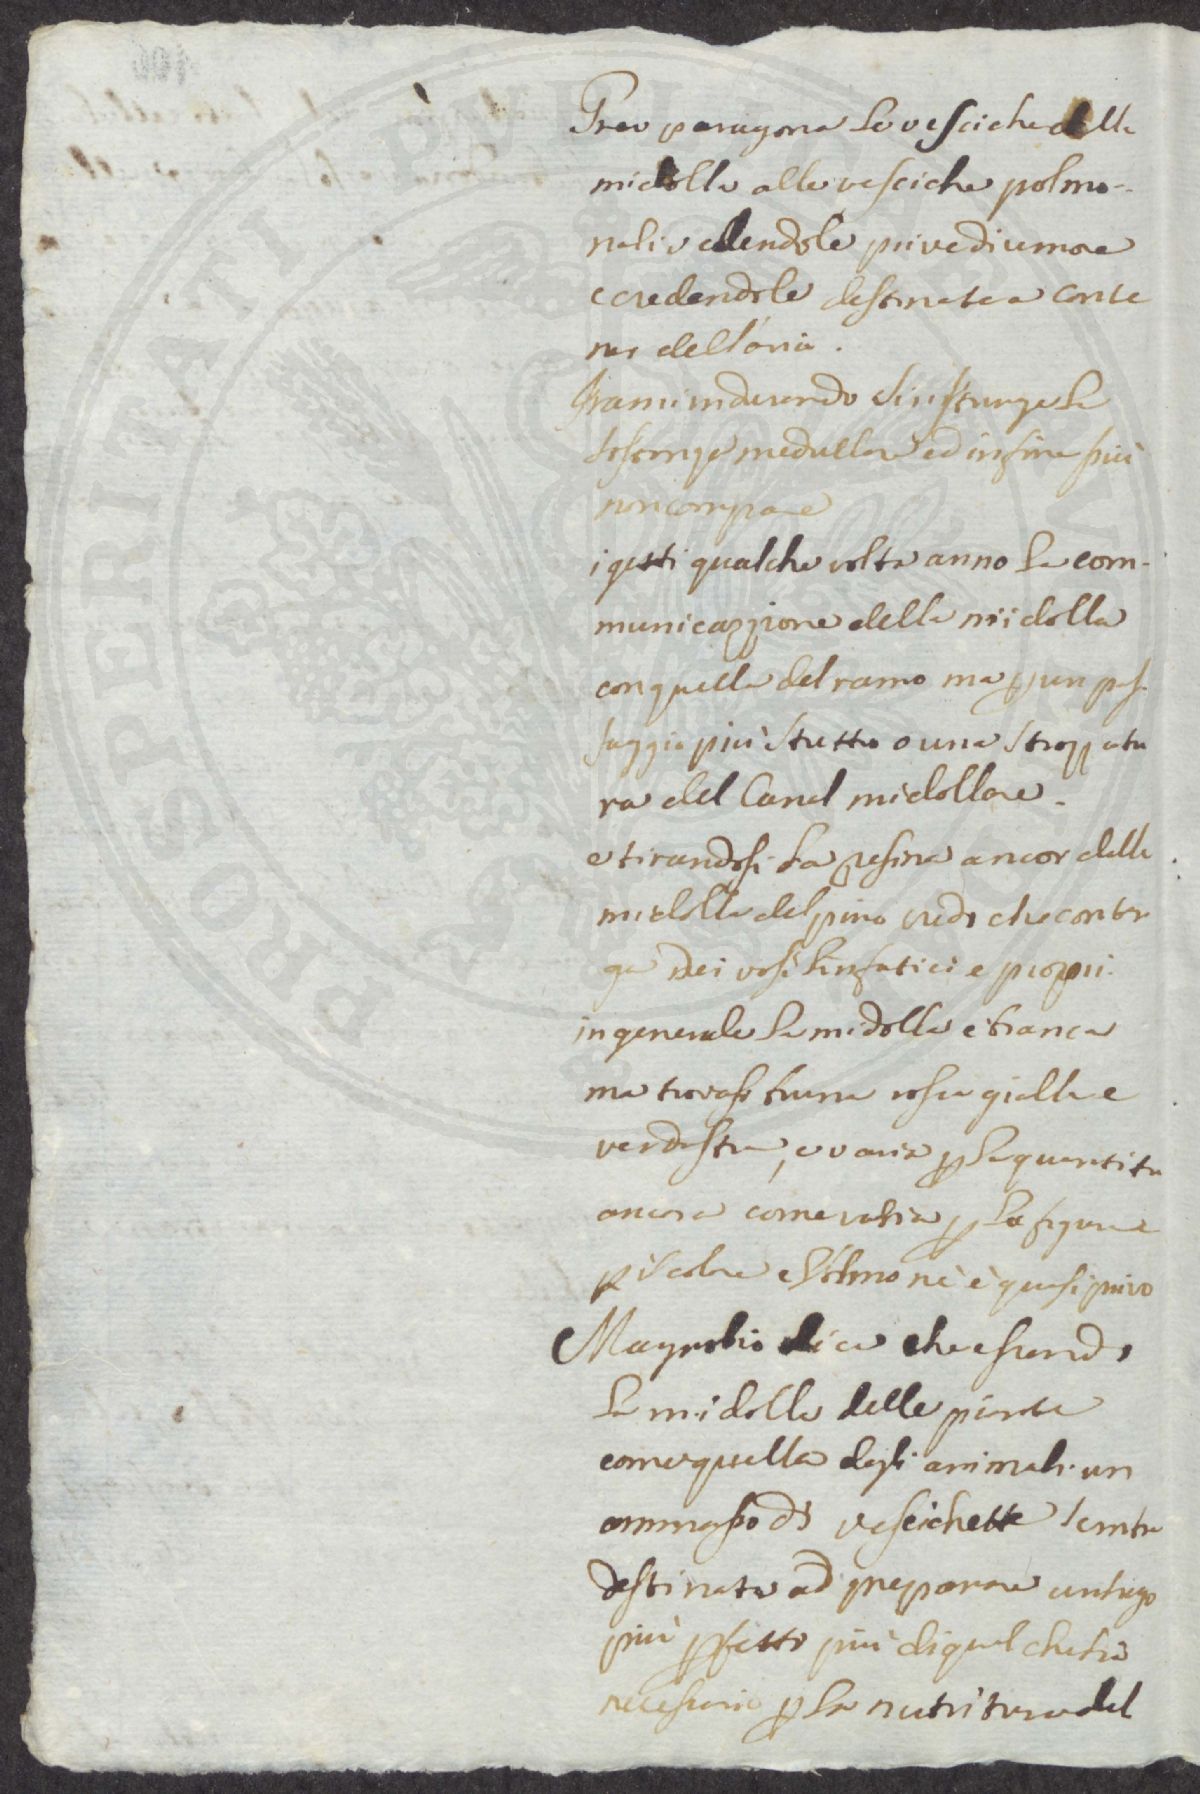 Grev paragona le vesciche della
midolla alle vesciche polmo-
nali vedendole prive di umore
e credendole destinate a conte
ner dell'aria.
I rami indurendo si ristringe la
sostanza medullare ed in fine più
non compare
i getti qualche volta anno la com-
municazzione della midolla
con quella del ramo ma p un pas-
saggio più stretto o una strozzatu
ra del Canal midollare.
e tirandosi la resina ancor della
midolla del pino credo che conten
ga dei vasi linfatici e proprii.
in generale la midolla è bianca
ma trovasi bruna rossa gialla e
verdastra, e varia p la quantità
ancora come varia p la figura e
p il colore e l'olmo nè è quasi privo
Magnolio dice che essendo
la midolla delle piante
come quella degli animali un
ammasso di vescichette sembra
destinata ad preparare un sugo
più pfetto più di quel che sia
necessario p la nutritura del
PROSPERITATI PVBLICAE